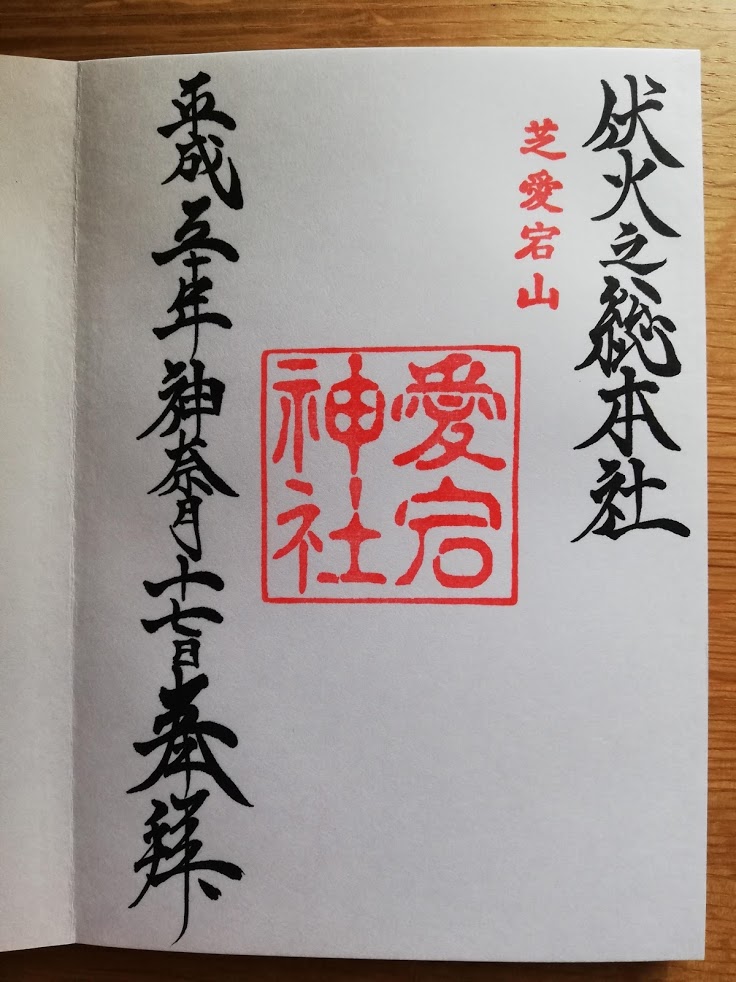 伏火之総本社
芝愛宕山
愛宕
神社
平成三十年神奈月十七日奉拝